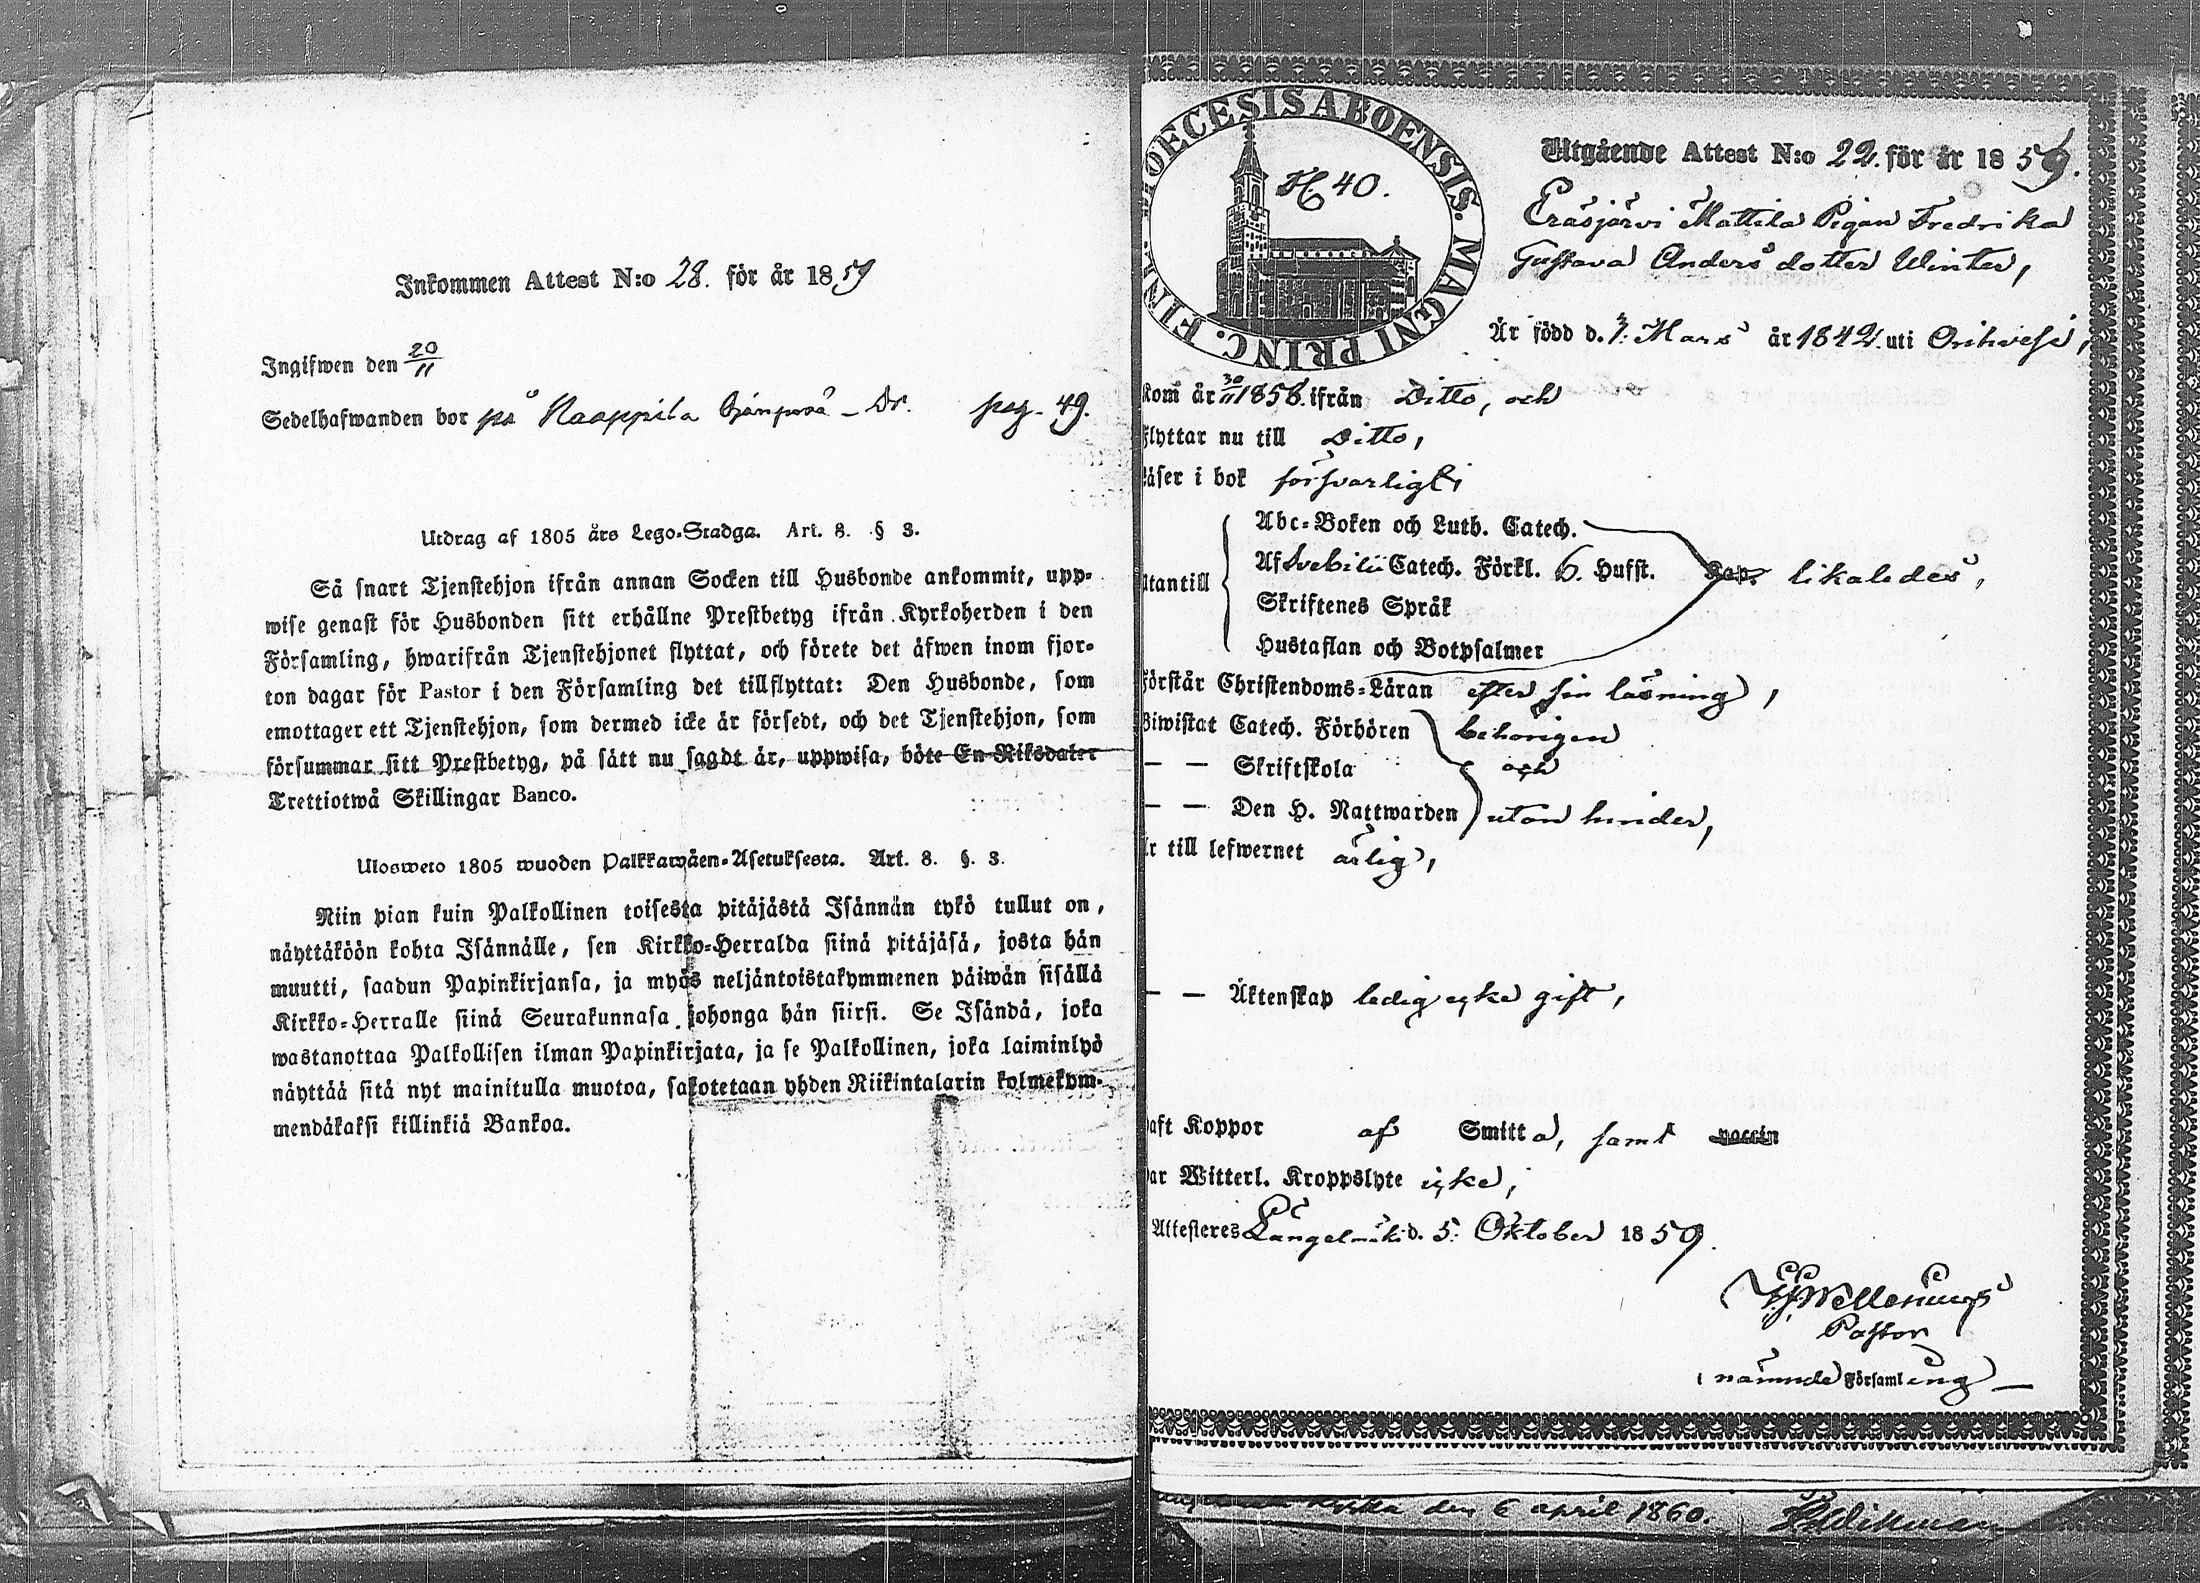 Inkommen Attest N:o 28. för år 1859
Ingifwen den 20/11
Sedelhafwanden bor på Naappila pag. 49.
Utdrag af 1805 års Lego-Stadga. Art. 8. § 3.
Så snart Tjenstehjon ifrån annan Socken till Husbonde ankommit, upp-
wise genast för Husbonden sitt erhållne Prestbetyg ifrån Kyrkoherden i den
Församling, hwarifrån Tjenstehjonet flyttat, och förete det äfwen inom fjor-
ton dagar för Pastor i den Församling det tillflyttat: Den Husbonde, som
emottager ett Tjenstehjon, som dermed icke är försedt, och det Tjenstehjon, som
försummar sitt Prestbetyg, på sätt nu sagdt är, uppwisa, böte En Riksdaler
Trettiotwå Skillingar Banco.
Ulosweto 1805 wuoden Palkkawäen-Asetuksesta. Art. 8. §. 3.
Niin pian kuin Palkollinen toisesta pitäjästä Isännän tykö tullut on,
näyttäköön kohta Isännälle, sen Kirkko-Herralda siinä pitäjäsä, josta hän
muutti, saadun Papinkirjansa, ja myös neljäntoistakymmenen päiwän sisällä
Kirkko-Herralle siinä Seurakunnasa johonga hän siirsi. Se Isändä, joka
wastanottaa Palkollisen ilman Papinkirjata, ja se Palkollinen, joka laiminlyö
näyttää sitä nyt mainitulla muotoa, sakotetaan yhden Riikintalarin kolmekym-
mendäkaksi killinkiä Bankoa.
DIOECESIS ABOENSIS. MAGNI PRINC. FINL.
N:o 40.
Utgående Attest N:o 22. för år 1859.
Eräsjärvi Mattila Pigan Fredrika
Gustava Anders dotter Winter,
Är född d. 7: Mars år 1842. uti Orihvesi,
Kom år 30/11 1858. ifrån Ditto, och
flyttar nu till Ditto,
läser i bok försvarligt,
Abc-Boken och Luth. Catech.
Utantill Af Svebilii Catech. Förkl. 6. Hufst. Cap. likaledes,
Skriftenes Språk
Hustaflan och Botpsalmer
förstår Christendoms-Läran efter sin läsning,
Biwistat Catech. Förhören behörigen
— — Skriftskola och
— — Den H. Nattwarden utan hinder,
Är till lefwernet ärlig,
— — Äktenskap ledig eyke gift,
haft Koppor af Smitta, samt vaccin
har Witterl. Kroppslyte icke,
Attesteres Längelmäki d. 5: Oktober 1859.
Pastor
i nämnde Församling
Kyrka den 6 april 1860.